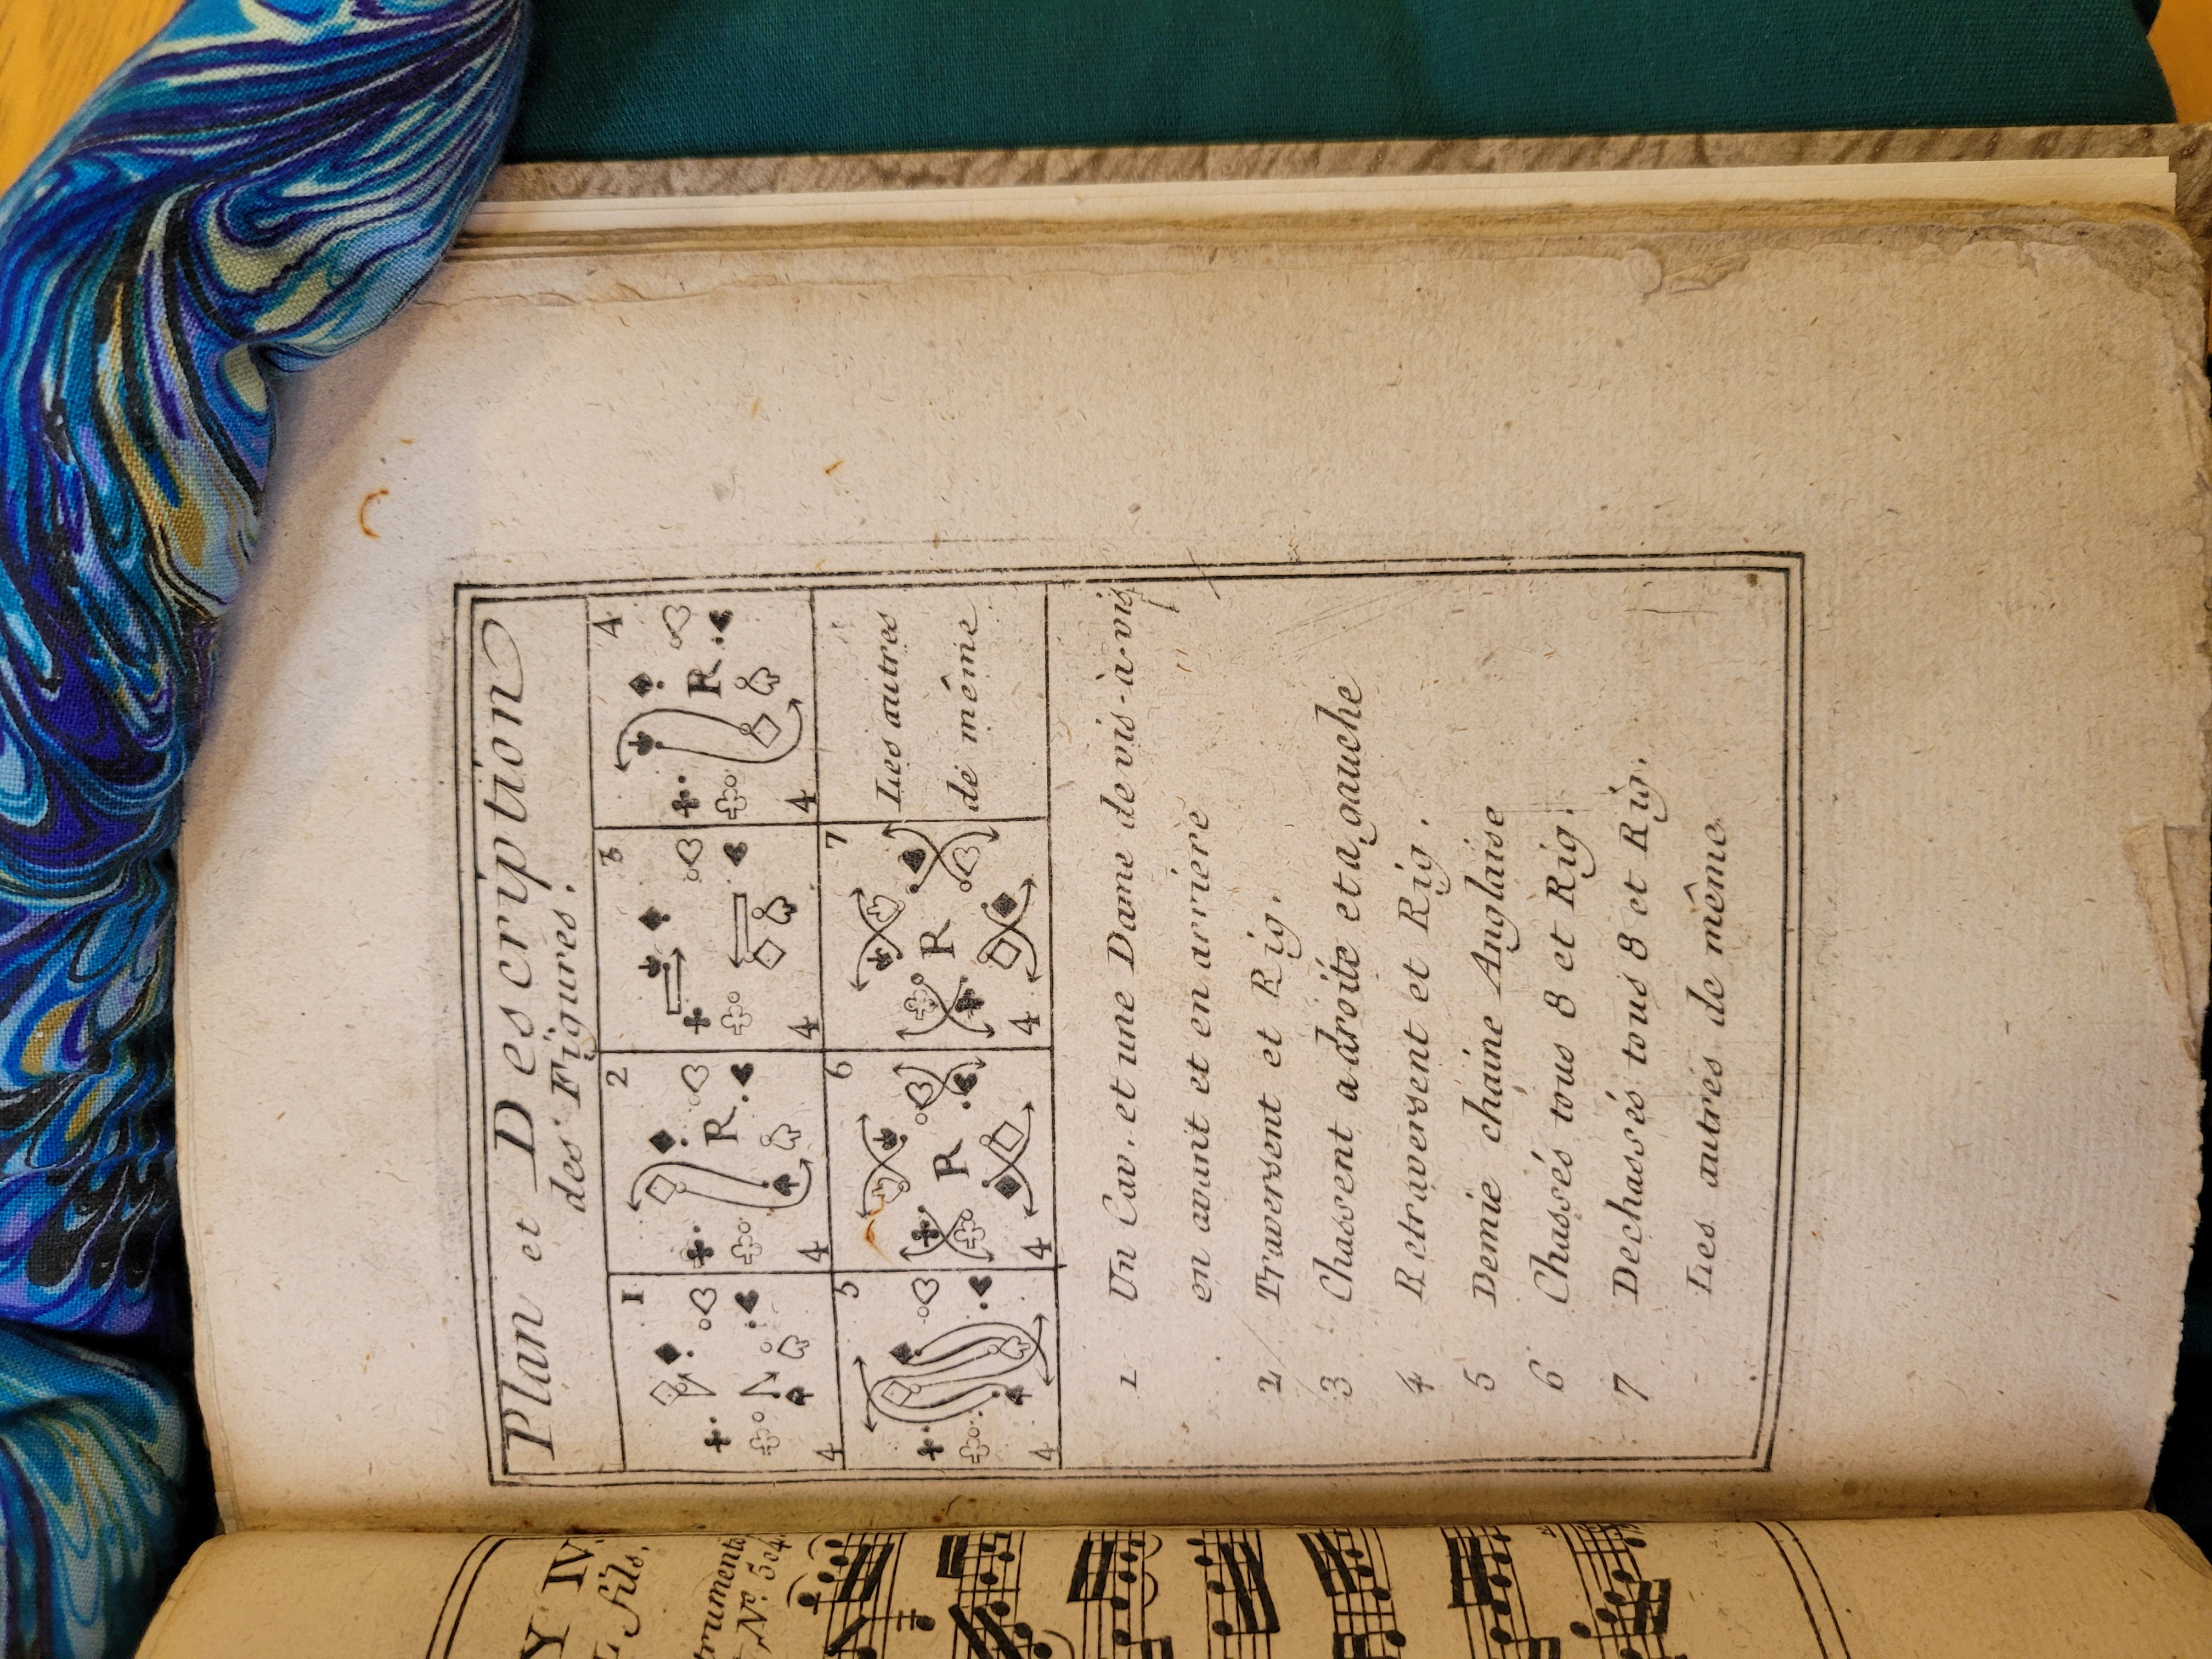 Plan et Description
des Figures.
1
4
2
R
4
3
4
4
R
4
5
4
6
R
4
7
R
4
Les autres
de même
1 Un Cav. et une Dame de vis-à-vis
en avant et en arriere
2 Traversent et Rig.
3 Chassent a droite et a gauche
4 Retraversent et Rig.
5 Demie chaine Anglaise
6 Chassés tous 8 et Rig.
7 Dechassés tous 8 et Rig.
- Les autres de même
Y IV.
fils.
struments
Nº. 504